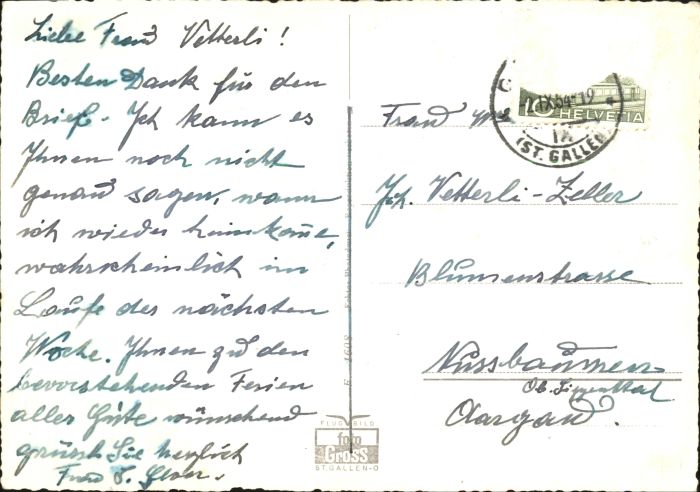 Liebe Frau Vetterli!
Besten Dank für den
Brief. Ich kann es
Ihnen noch nicht
genau sagen, wann
ich wieder heimkome,
wahrscheinlich im
Laufe des nächsten
Woche. Ihnen zu den
bevorstehenden Ferien
alles Gute wünschend
grüsst Sie herzlich
Frau
Frau
Vetterli-Zeller
Blumenstrasse
Nussbaumen
Ob. Siggenthal
Aargau.
10 HELVETIA
IX.54-19
(ST. GALLEN)
FLUGBILD
foto
Gross
ST.GALLEN-O